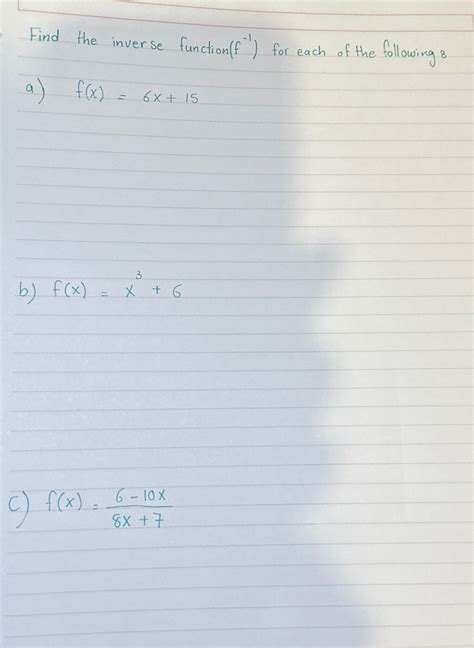 Find the inverse function(f⁻¹) for each of the following :
a) f(x) = 6x + 15
b) f(x) = x³ + 6
c) f(x) = 6 - 10x / 8x + 7